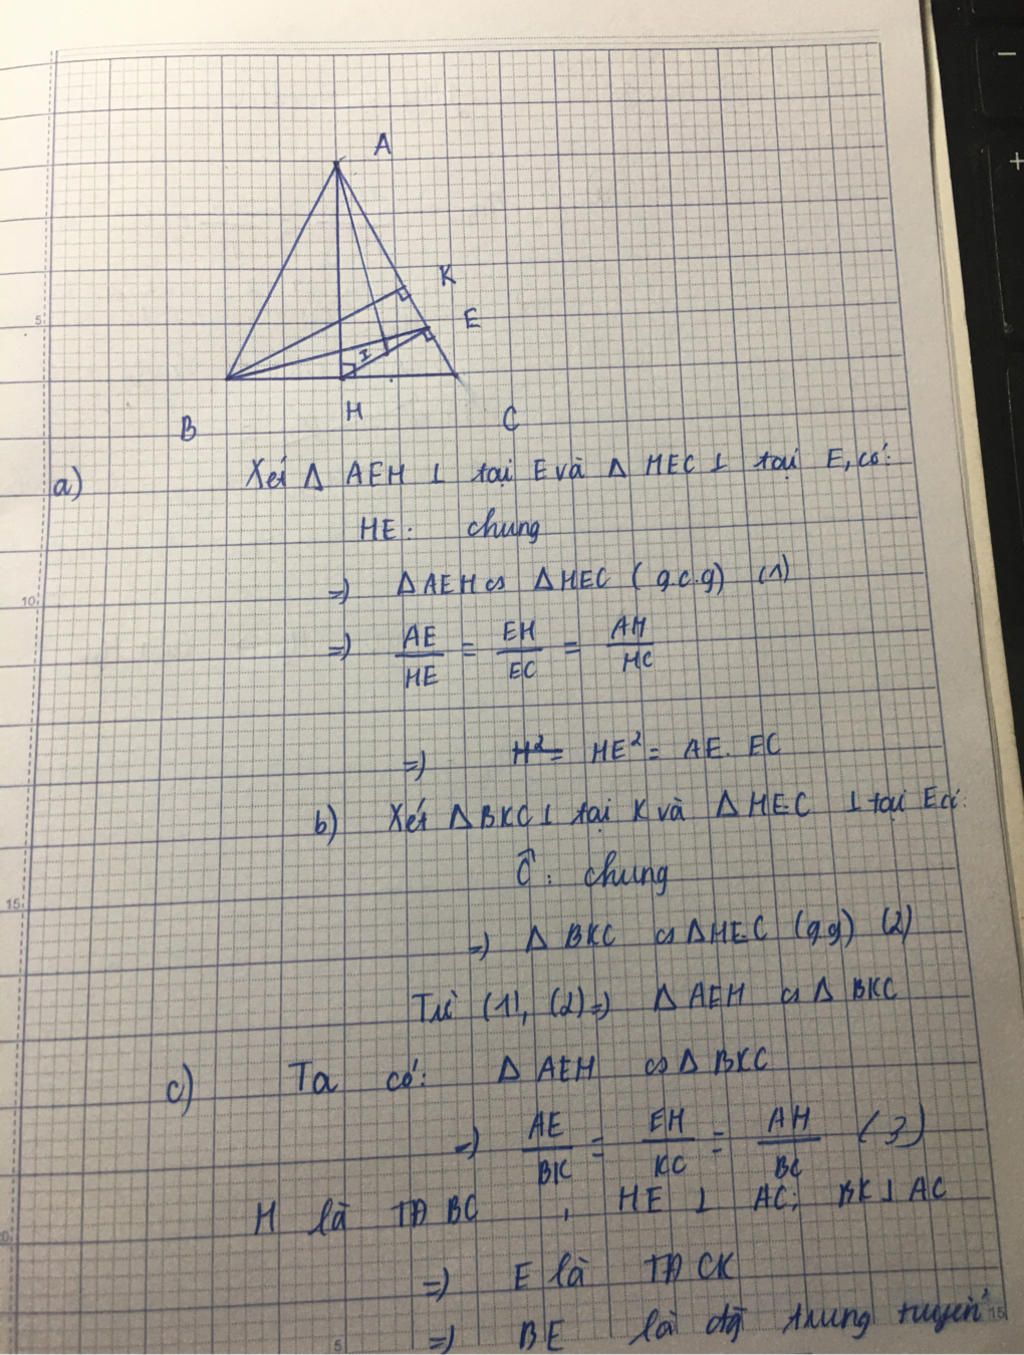 A
K
E
I
H
B
C
a) Xét Δ AEH ⊥ tại E và Δ HEC ⊥ tại E, có:
HE: chung
=> ΔAEH ∽ ΔHEC (g.c.g) (1)
=> AE/HE = EH/EC = AH/HC
=> H² = HE² = AE. EC
b) Xét ΔBKC ⊥ tại K và ΔHEC ⊥ tại E có:
Ĉ: chung
=> Δ BKC ∽ ΔHEC (g.g) (2)
Từ (1), (2) => Δ AEH ∽ Δ BKC
c) Ta có: Δ AEH ∽ Δ BKC
=> AE/BK = EH/KC = AH/BC (3)
H là TĐ BC , HE ⊥ AC; BK ⊥ AC
=> E là TĐ CK
=> BE là đg trung tuyến
5
10
15
5
15